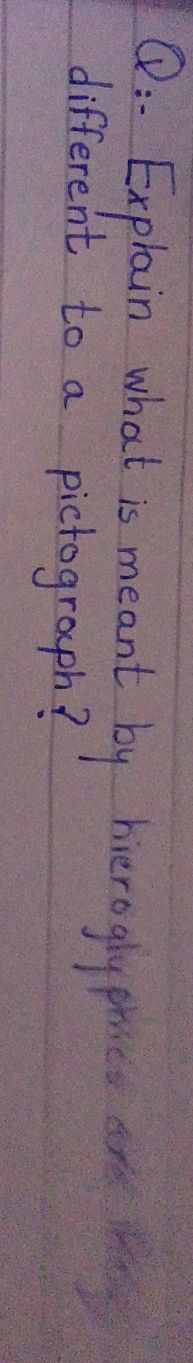 Q:- Explain what is meant by hieroglyphics are they
different to a pictograph?